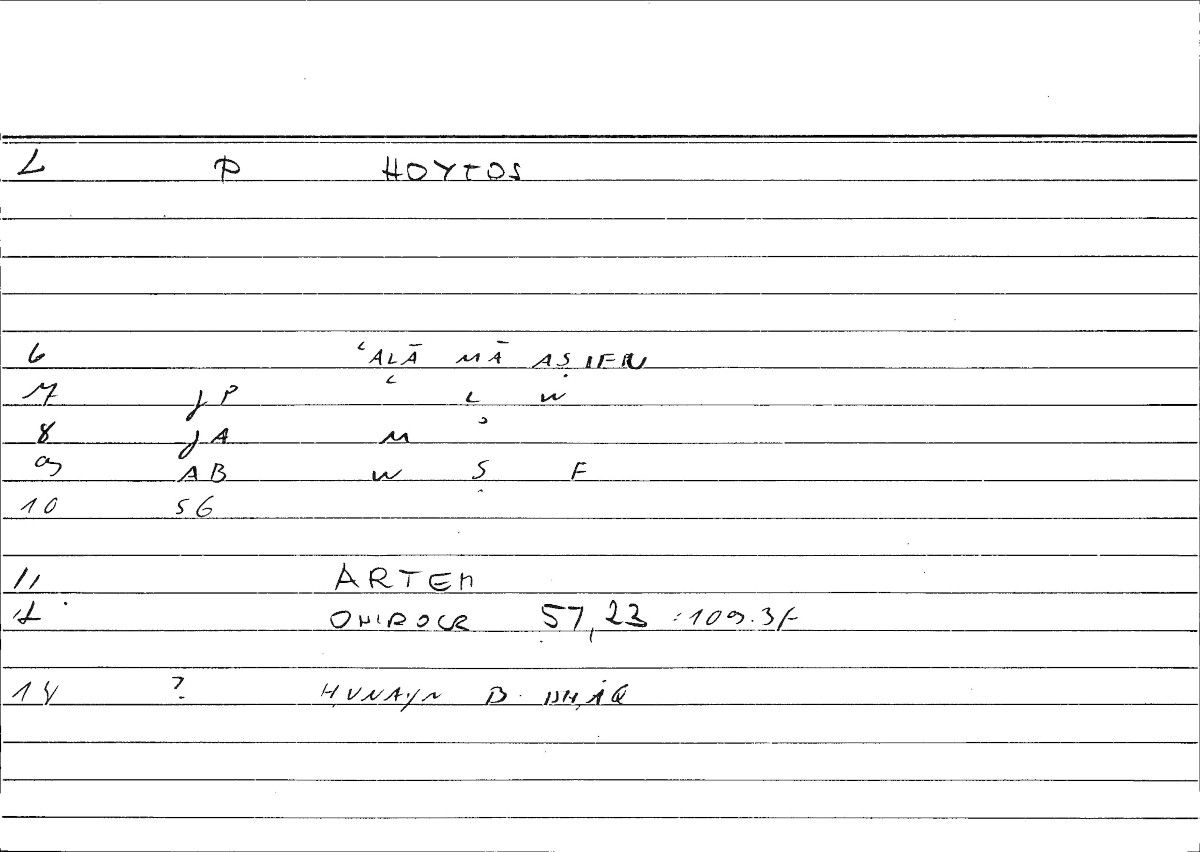 L P HOYTOS
6 ʿALĀ MĀ AṢIFU
7 JP ʿ L W
8 JA M ʾ
9 AB W Ṣ F
10 SG
11 ARTEM
ONIROCR 57,23 : 109.3f
14 ? ḤUNAYN B. ISḤĀQ